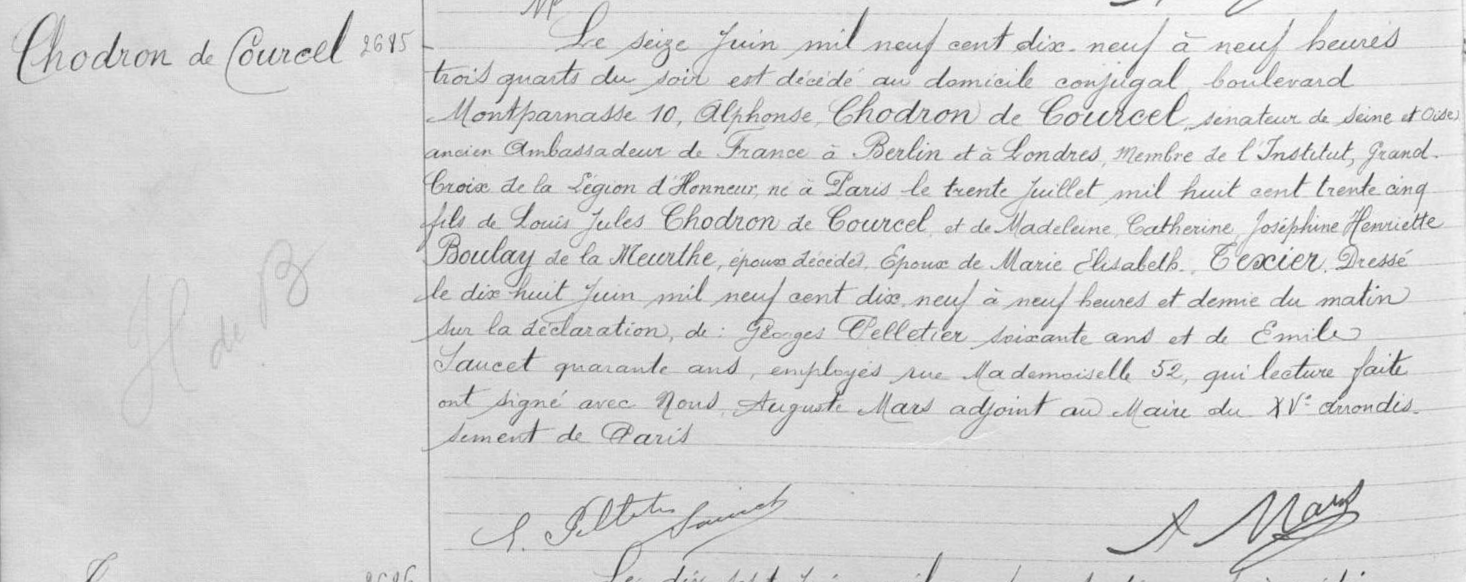 Chodron de Courcel 2695
Le seize Juin mil neuf cent dix-neuf à neuf heures
trois quarts du soir est décédé au domicile conjugal boulevard
Montparnasse 10, Alphonse, Chodron de Courcel, sénateur de Seine et Oise,
ancien Ambassadeur de France à Berlin et à Londres, Membre de l'Institut, Grand-
Croix de la Légion d'Honneur, né à Paris le trente Juillet mil huit cent trente cinq
fils de Louis Jules Chodron de Courcel, et de Madeleine, Catherine, Joséphine Henriette
Boulay de la Meurthe, époux décédés. Epoux de Marie Elisabeth, Texier. Dressé
le dix huit Juin mil neuf cent dix-neuf à neuf heures et demie du matin
sur la déclaration, de: Georges Pelletier soixante ans et de Emile
Saucet quarante ans, employés rue Mademoiselle 52, qui lecture faite
ont signé avec Nous, Auguste Mars adjoint au Maire du XVe arrondis-
sement de Paris
H de B
Saucet A Mars
2696
Le dix sept Juin mil